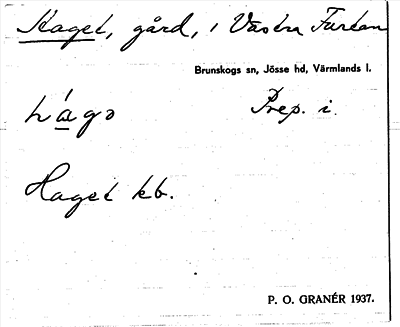 Haget, gård, i Västra Furtan
Brunskogs sn, Jösse hd, Värmlands l.
hágə Prep. i.
Haget kb.
P. O. GRANÉR 1937.